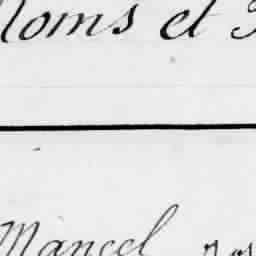 Noms et
Mancel